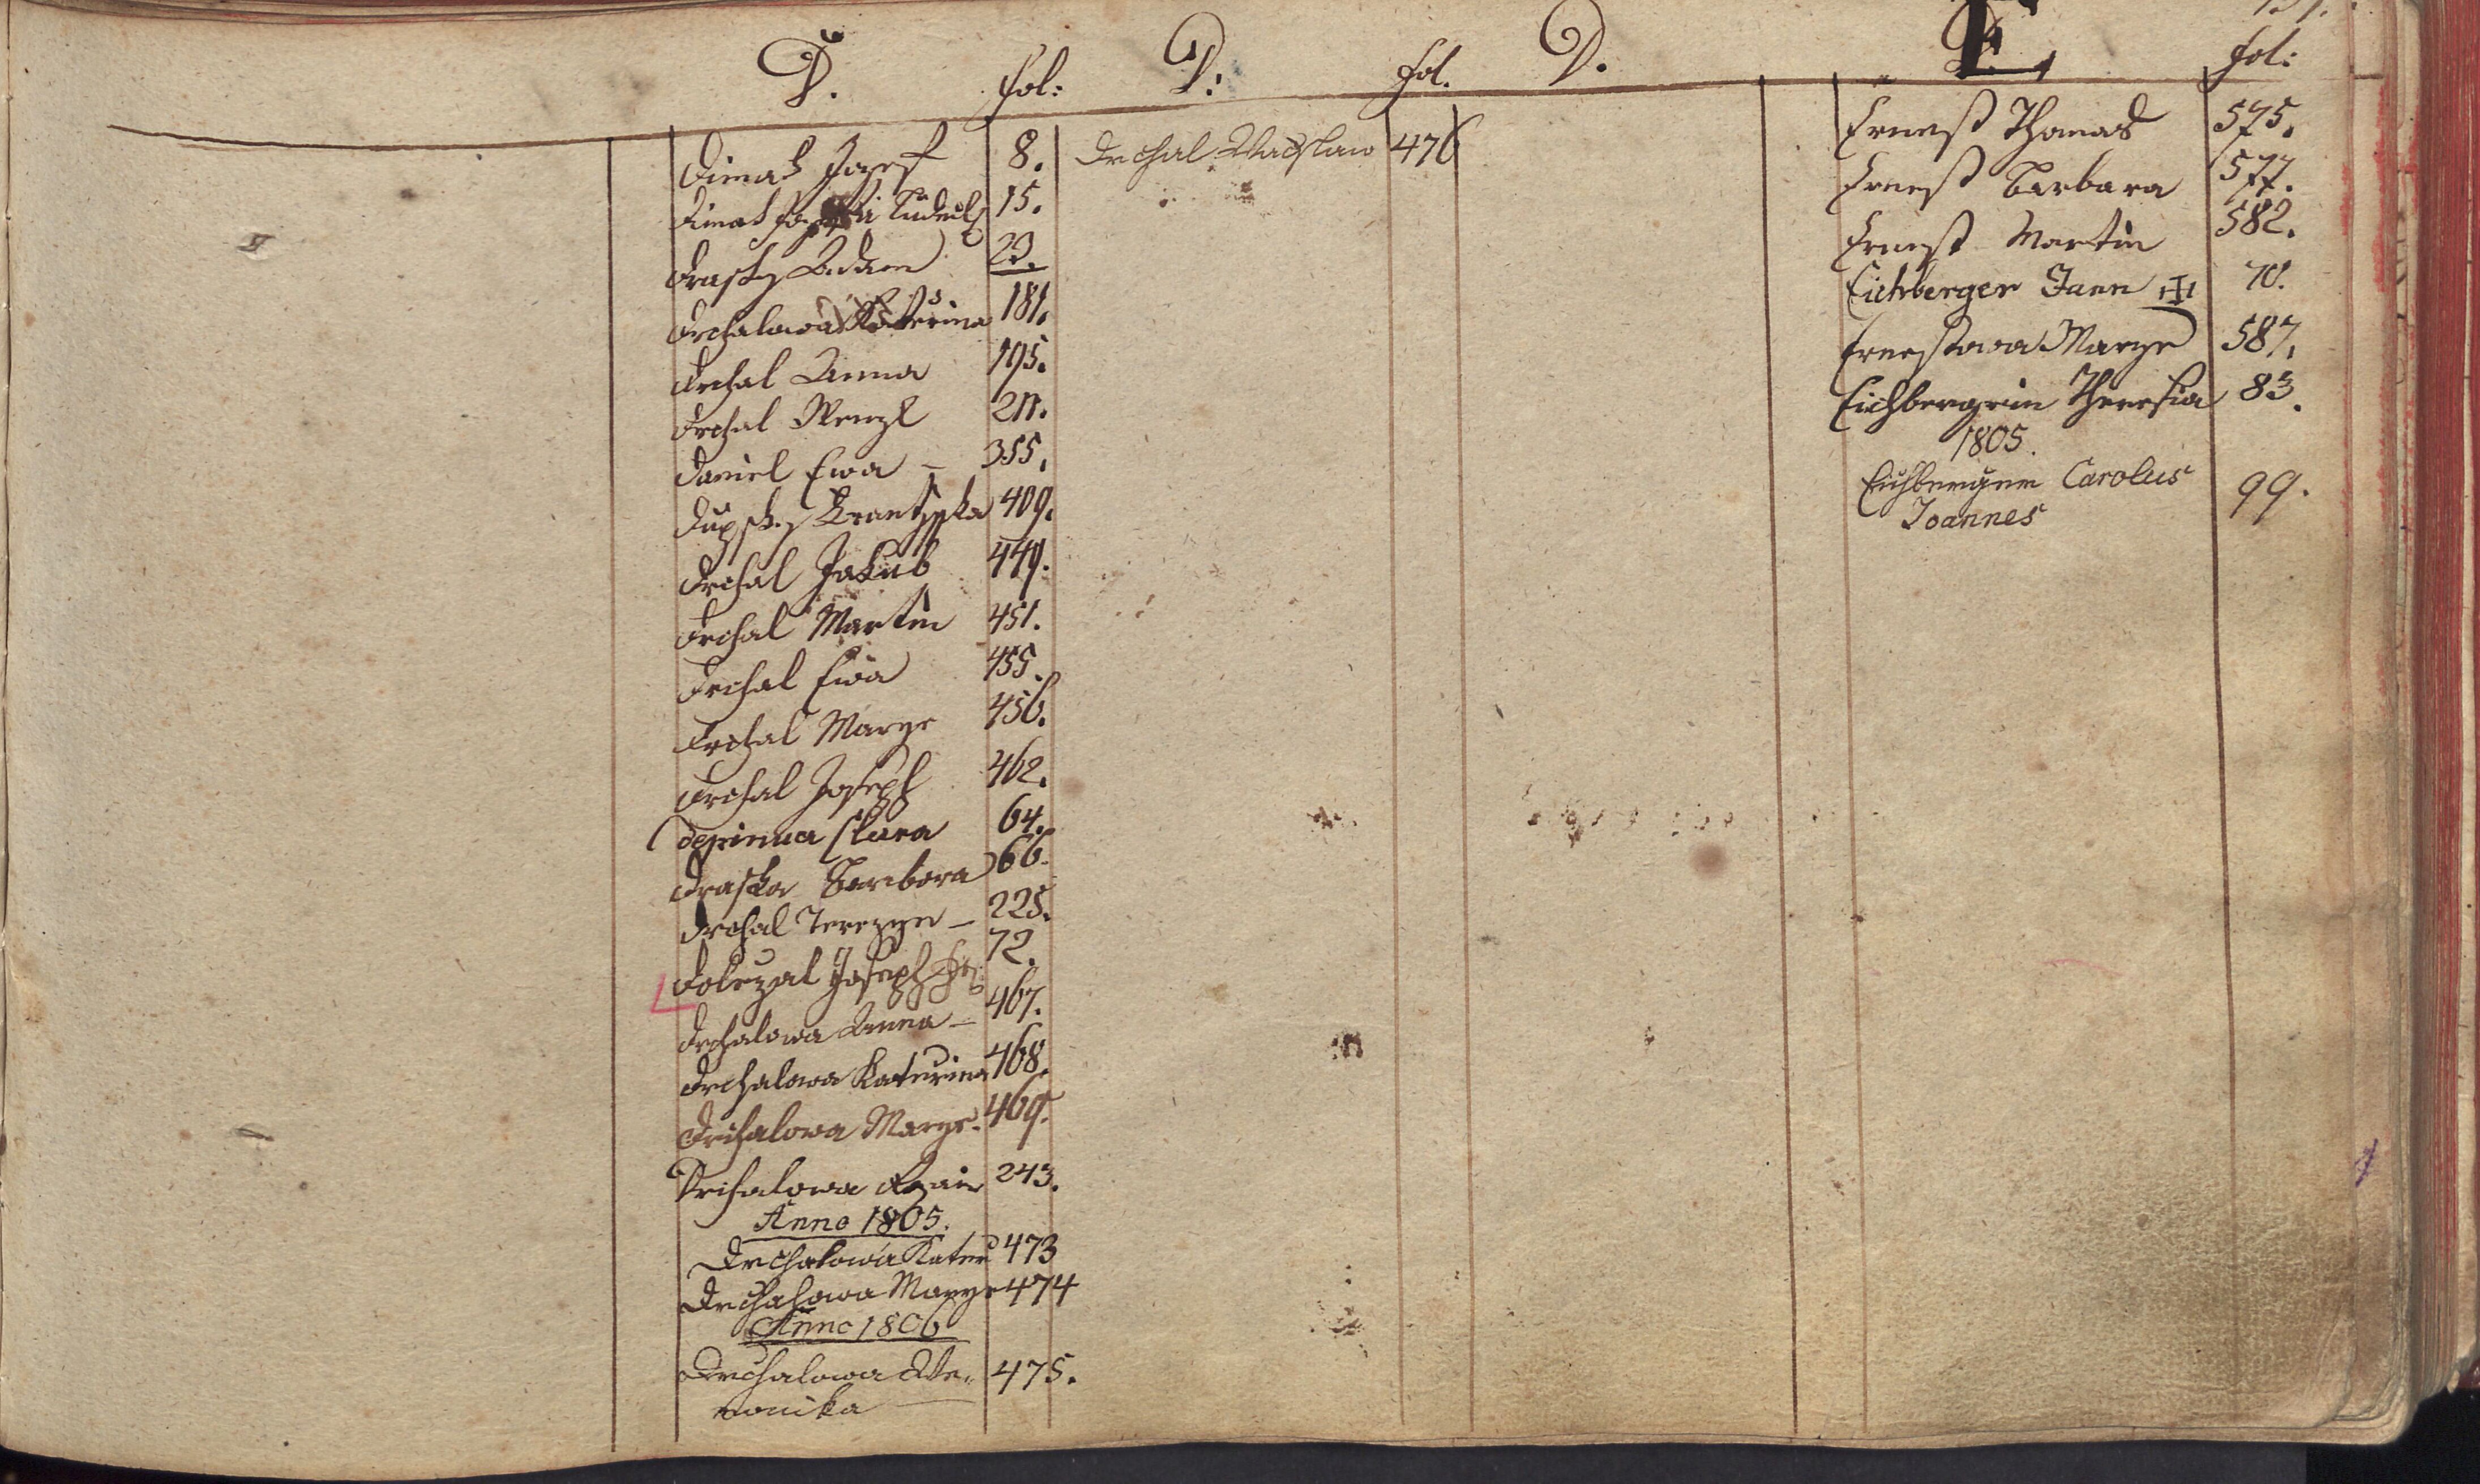 D. Fol:
Dimak Josef 8.
Dimak 15.
Drasky Adam 23.
Drchalowa Katerina 181.
Drchal Anna 195.
Drchal Wenzl 211.
Daniel Ewa – 355.
Frantysska 409.
Drchal Jakub 449.
Drchal Martin 451.
Drchal Ewa 455.
Drchal Marye 456.
Drchal Joseph 462.
Clara 64.
Draska Barbora 66.
Drchal Terezye – 225.
Dolezal Joseph 72.
Drchalowa Anna – 467.
Drchalowa Katerina 468.
Drchalowa Marye. 469.
Drchalowa 243.
Anno 1805.
Drchalowa Kater 473
Drchalowa Marye 474
Anno 1806
Drchalowa We„ 475.
ronika
D: Fol.
Drchal Waczlaw 476
D.
E. Fol:
Ernest Thomas 575.
Ernest Barbara 577.
Ernest Martin 582.
Eichberger Jann 70.
Ernestowa Marye 587.
Eichbergrin Theresia 83.
1805.
Eichberger Carolus 99.
Joannes